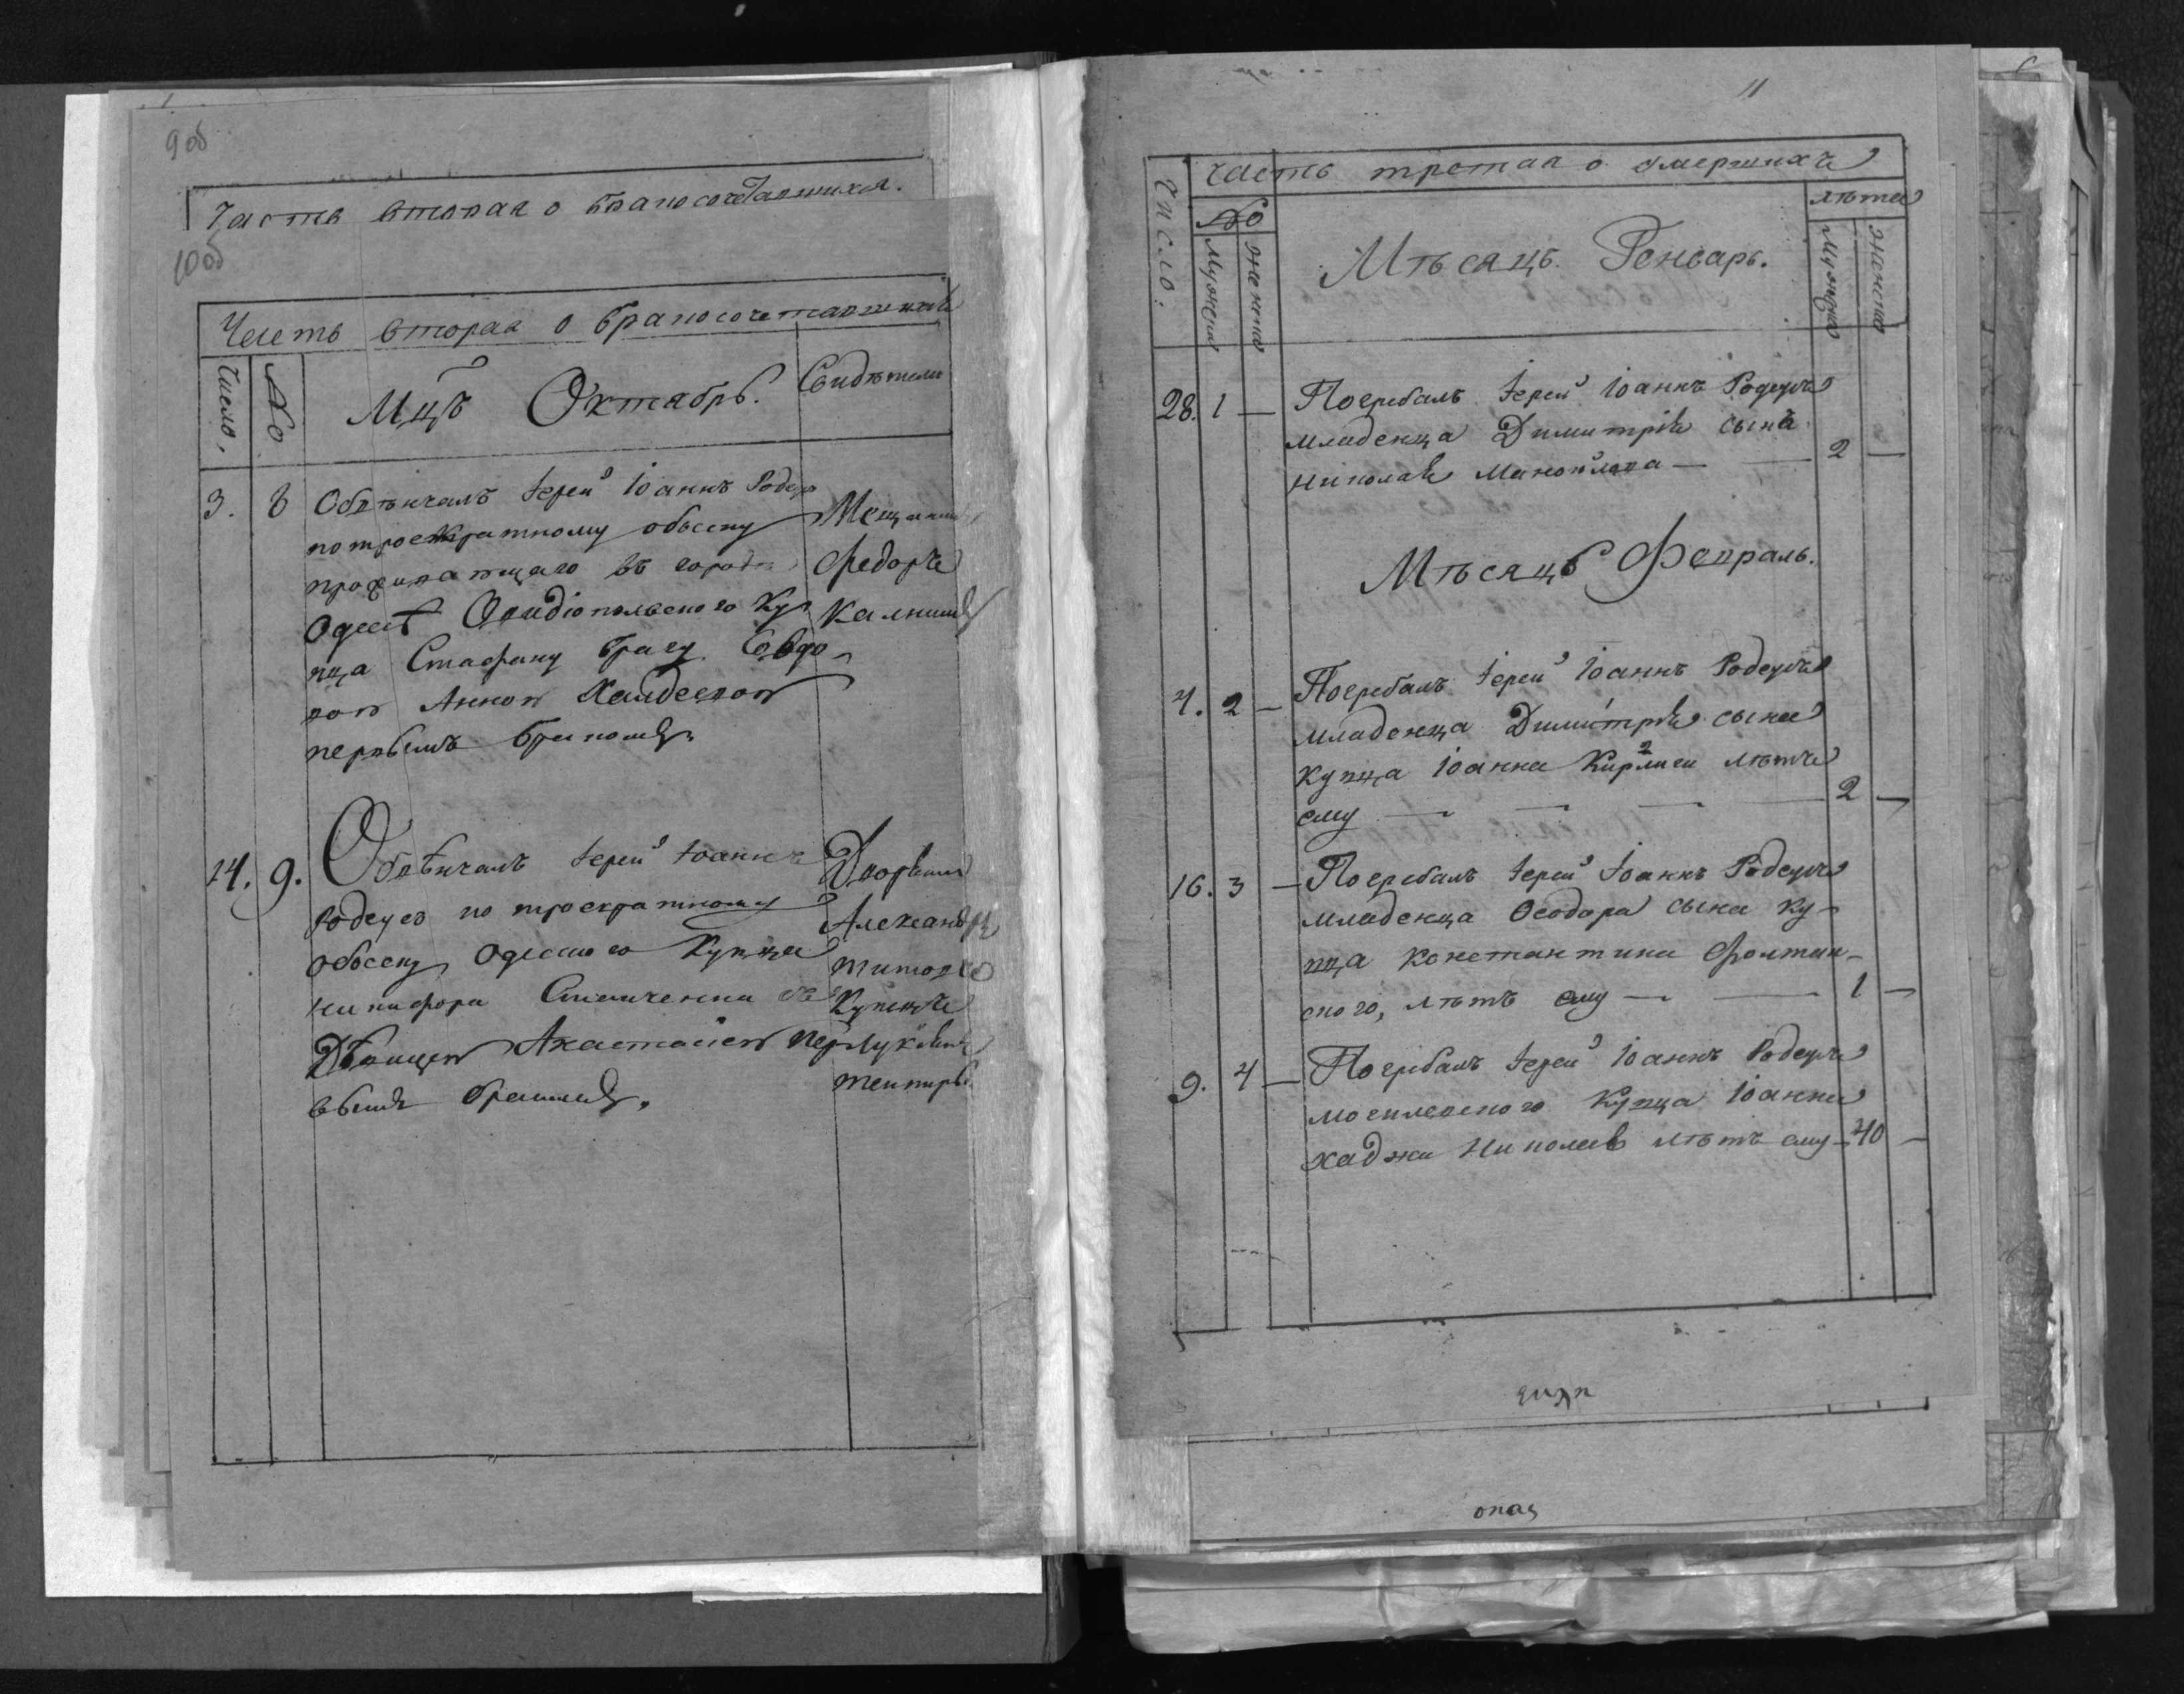 9 об
Часть вторая о бракосочетавшихся.
10 об
Часть вторая о бракосочетавшихся
Число.
№
Мцъ Октябрь.
Свидѣтели
3. 8 Обвѣнчалъ Іерей Іоаннъ Родеръ
по троекратному обыску
проживающаго въ городѣ
Одессѣ Овидіопольского Ку-
пца Стефану
Анною
первымъ бракомъ
Мещанинъ
Федоръ
14. 9. Обвѣнчалъ Іерей Іоаннъ
Родеусъ по троекратному
обыску Одесского Купца
Никифора съ
Дѣвицею Анастасіею пер
вымъ бракомъ.
Дворянинъ
Александръ
Купецъ
11
Часть третая о умершихъ
Число:
№
Мужеска
Женска
Мѣсяцъ. Генварь.
лѣта
Мужеска
Женска
28. 1 — Погребалъ Іерей Іоаннъ Родеусъ
младенца Димитрія сына
Николая — — 2 —
Мѣсяцъ Февраль.
4. 2 — Погребалъ Іерей Іоаннъ Родеусъ
младенца Димитрія сына
Купца Іоанна лѣтъ
ему — — — — 2 —
16. 3 — Погребалъ Іерей Іоаннъ Родеусъ
младенца Ѳеодора сына Ку-
пца Константина
ского, лѣтъ ему — — 1 —
9. 4 — Погребалъ Іерей Іоаннъ Родеусъ
могилевского Купца Іоанна
хаджи Николаев лѣтъ ему — 40 —